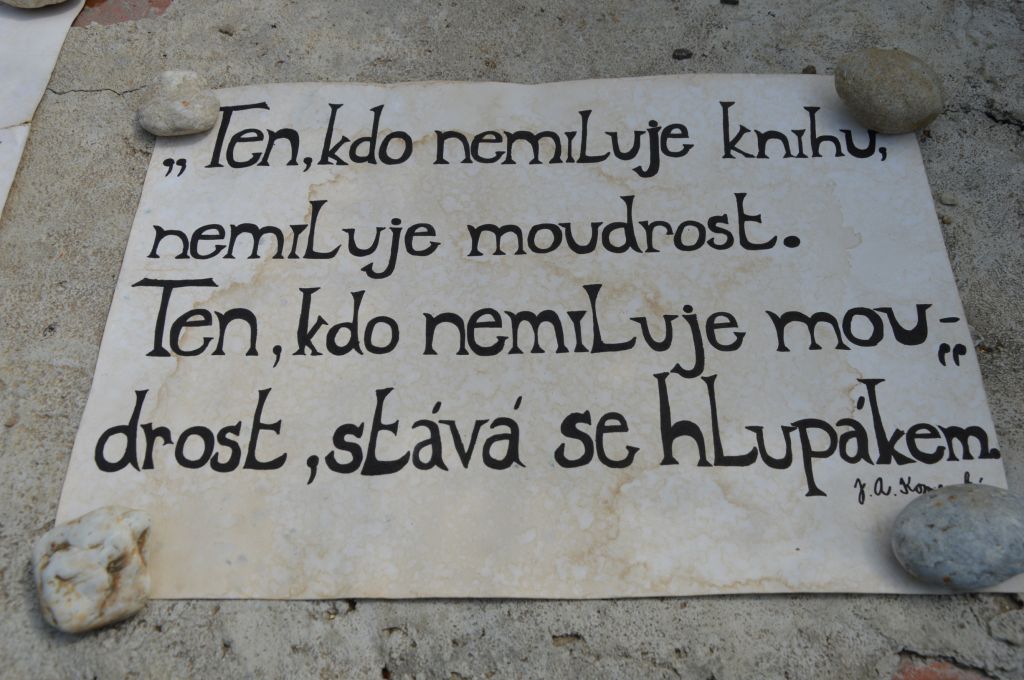 „Ten, kdo nemiluje knihu,
nemiluje moudrost.
Ten, kdo nemiluje mou-
drost, stává se hlupákem.“
J. A.